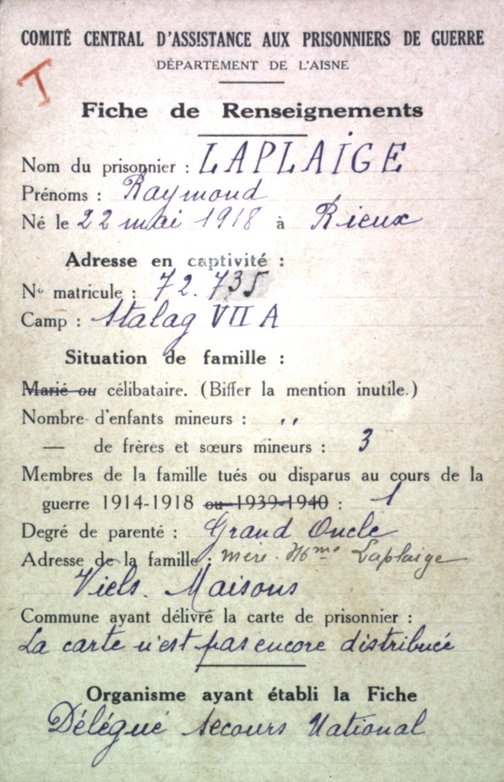 COMITÉ CENTRAL D'ASSISTANCE AUX PRISONNIERS DE GUERRE
DÉPARTEMENT DE L'AISNE
T
Fiche de Renseignements
Nom du prisonnier : LAPLAIGE
Prénoms : Raymond
Né le 22 mai 1918 à Rieux
Adresse en captivité :
No matricule : 72.735
Camp : Stalag VII A
Situation de famille :
Marié ou célibataire. (Biffer la mention inutile.)
Nombre d'enfants mineurs : ,,
— de frères et sœurs mineurs : 3
Membres de la famille tués ou disparus au cours de la
guerre 1914-1918 ou 1939-1940 : 1
Degré de parenté : Grand Oncle
Adresse de la famille : mère. Mme Laplaige
Viels. Maisons
Commune ayant délivré la carte de prisonnier :
La carte n'est pas encore distribuée
Organisme ayant établi la Fiche
Délégué Secours National